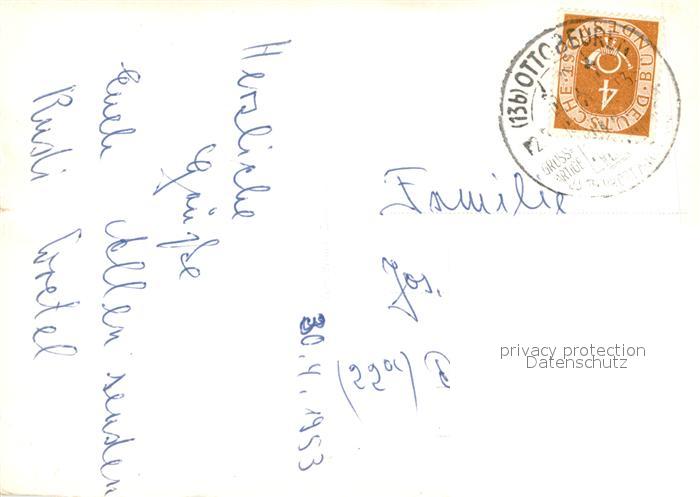 Herzliche
Grüße
Euch Allen senden
Rudi Gretel
30.4.1953
Familie
(22a)
(13b) OTTOBEUREN
DEUTSCHE BUNDESPOST
4
privacy protection
Datenschutz